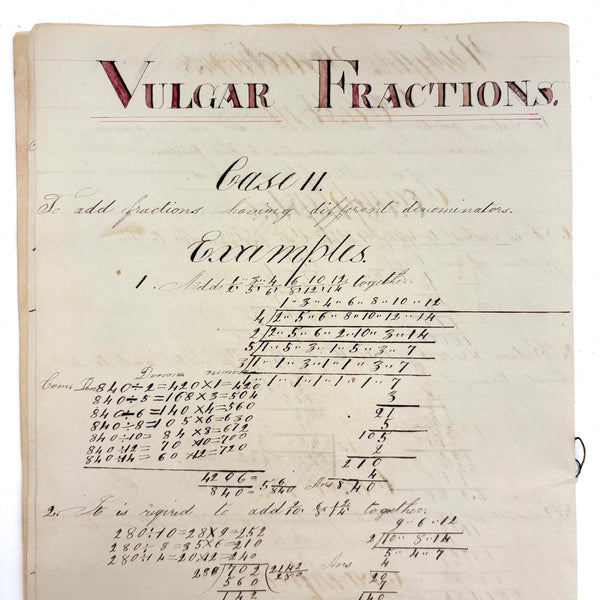 VULGAR FRACTIONS.
Case II.
To add fractions having different denominators.
Examples.
1. Add 1/2 3/5 4/6 6/8 10/12 12/14 together.
1 " 3 " 4 " 6 " 8 " 10 " 12
4 | 2 " 5 " 6 " 8 " 10 " 12 " 14
2 | 2 " 5 " 6 " 2 " 10 " 3 " 14
5 | 1 " 5 " 3 " 1 " 5 " 3 " 7
3 | 1 " 1 " 3 " 1 " 1 " 3 " 7
1 " 1 " 1 " 1 " 1 " 1 " 7
Com: Den
840÷2=420×1=420
840÷5=168×3=504
840÷6=140×4=560
840÷8=105×6=630
840÷10= 84×8=672
840÷12= 70×10=700
840÷14= 60×12=720
3
21
5
105
2
210
4
840
4206=
840= 5 6/840 Ans
2. It is reqired to add together.
9 " 6 " 12
2 | 10 " 8 " 14
5 " 4 " 7
4
20
7
140
280÷10=28×9=252
280÷8=35×6=210
280÷14=20×12=240
280 ) 702 ( 2 142/280 Ans
560
142